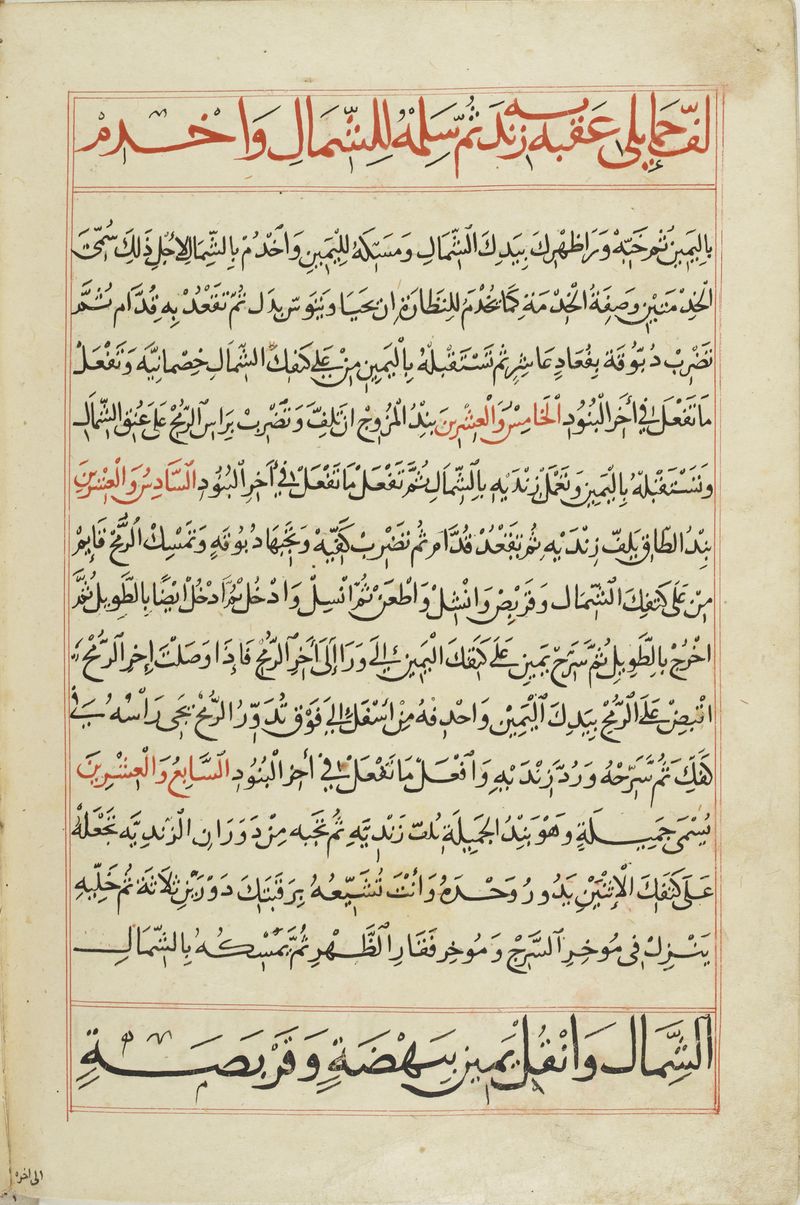 لفّ حمايلى عقبه به زند ثمّ سلمهُ للشّمالِ وَاخدم
باليمين ثم خبّه وَرَا ظهرك بيدك الشّمالِ ومسّكهُ لليمين وَاخدُم بالشّمال لاجل ذلك سُمّى
الخدمتين وصفةُ الخدمة كما تخدم للنظارة ان يحيا وينوس بدل ثمّ تقعُد به قدّام ثمّ
تضرب دبّوقة بقعاد عاشر ثم تستقبلهُ باليمين من على كتفك الشّمال خصمانيّه وتفعل
ما تفعل فى أخر البنود الخامس والعشرين بند المزوج ان تلفّ وتضرب براس الرمح على عنق الشّمال
وتستقبلهُ باليمين وتعمل زنديه بالشّمال ثمّ تفعل ما تفعل فى أخر البنود السّادس والعشرين
بند الطّاق يلفّ زنديه ثم تقعد قدّام ثم تضرب كفّيه وتجبها دبوقه وتمسك الرمح قايم
من على كتفك الشّمال وقربص وانشل واطعن ثمّ انسل وادخل ثمّ ادخل ايضًا بالطّويل ثمّ
اخرج بالطّويل ثمّ سرّح يمين على كتفك اليمين الى ورا إلى أخر الرّمح فاذا وصلت إخر الرّمح
اقبض على الرّمح بيدك اليمين واحدفهُ من اسفل الى فوق تدوّر الرّمح يجى رأسهُ فى
كفّك ثمّ سرّحهُ وردّ زنديه وافعل ما تفعل فى أخر البنود السّابع والعشرين
يُسمى جميلةٍ وهو بند الجميلة ثلث زنديّه ثمّ تجبه من دوران الزنديّه تجعلهُ
على كتفك الاثنين يدور وحدهُ وانت تُشيّعهُ برقبتك دورين ثلاثة ثم خلّيه
ينزل فى موخر السّرج وموخر فقار الظّهر ثمّ يمسكهُ بالشّمال
الشّمال وانقُل يمين ببهضةٍ وقربصةٍ
الى اخره